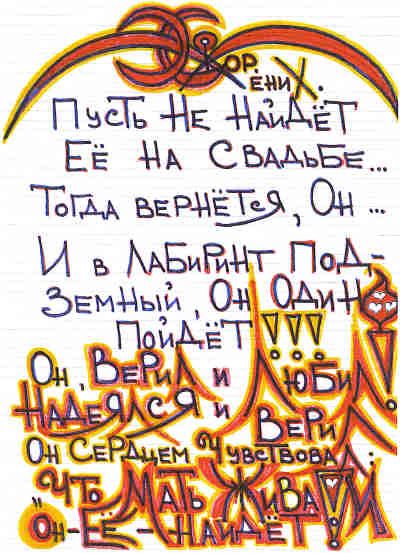 ХОР.
ЕНИХ.
Пусть Не Найдёт
Её на Свадьбе...
Тогда вернётся, Он ...
И в Лабиринт Под,-
Земный, Он Один
Пойдёт!!!
Он, Верил и Любил!
Надеялся и Верил.
Он Сердцем Чувствовал:
Что Мать Жива! И
"Он-Её-Найдёт!